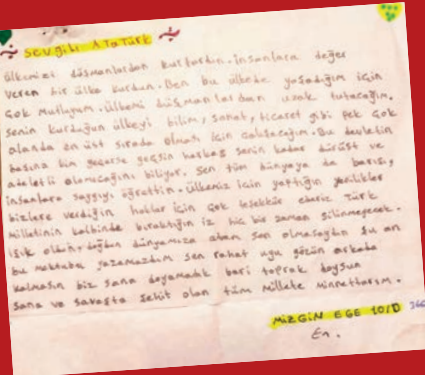 Sevgili Atatürk
ülkemizi düşmanlardan kurtardın. insanlara değer
veren bir ülke kurdun. Ben bu ülkede yaşadığım için
çok mutluyum. ülkemi düşmanlardan uzak tutacağım.
senin kurduğun ülkeyi bilim, sanat, ticaret gibi pek çok
alanda en üst sırada olması için çalışacağım. Bu devletin
başına kim geçerse geçsin hiçkes senin kadar dürüst ve
adaletli olamıcağını biliyor. Sen tüm dünyaya da barışı,
insanlara saygıyı öğrettin. ülkemiz için yaptığın yenilikler
bizlere verdiğin haklar için çok teşekkür ederiz Türk
milletinin kalbinde bıraktığın iz hiç bir zaman silinmeyecek.
ışık oldun doğdun dünyamıza atam sen olmasaydın şu an
bu mektubu yazamazdım sen rahat uyu gözün arkada
kalmasın biz sana doyamadık bari toprak doysun
sana ve savaşta şehit olan tüm millete minnettarım.
MİZGİN EGE 10/D 366